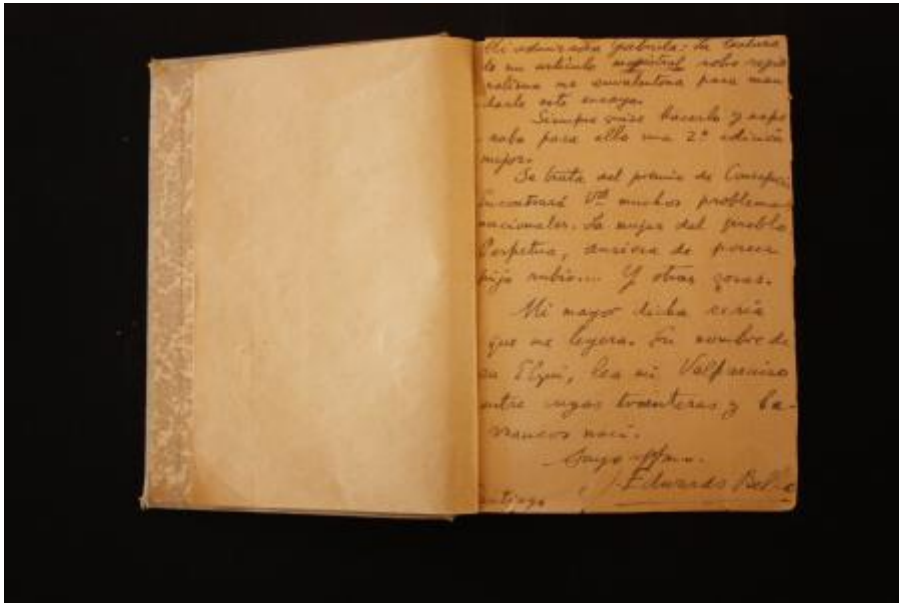 Mi admirada Gabriela: La lectura
de un artículo magistral sobre
me envalentona para man
darle este ensayo.
Siempre quise hacerlo y espe
raba para ello una 2ª edición
mejor.
Se trata del premio de
Encontrará Vd muchos problemas
nacionales. La mujer del pueblo
Perpetua, ansiosa de parecer
hijo rubio.... Y otras cosas.
Mi mayor dicha sería
que me leyera. En nombre de
su Elqui, lea mi Valparaíso
entre cuyas torrenteras y ba-
rrancos nací.
Suyo
Eduardo Bello